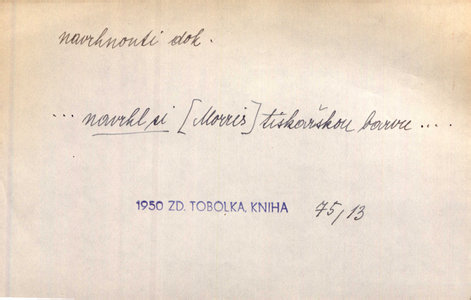 navrhnouti dok.
... navrhl si [Morris] tiskařskou barvu ....
1950 ZD. TOBOLKA, KNIHA 75/13